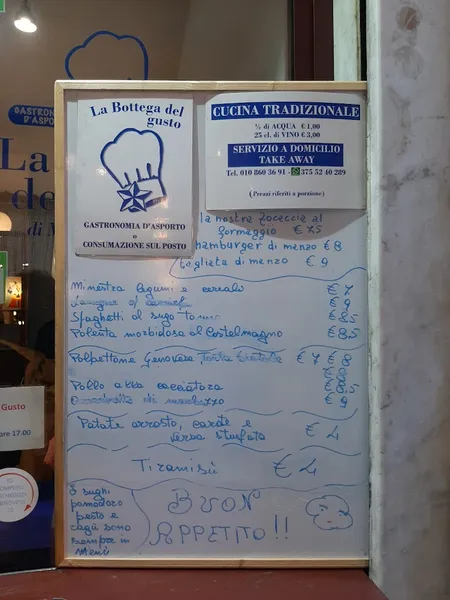 GASTRONO
D'ASPO
La Bottega del
gusto
GASTRONOMIA D'ASPORTO
e
CONSUMAZIONE SUL POSTO
CUCINA TRADIZIONALE
½ di ACQUA € 1,00
25 cl. di VINO € 3,00
SERVIZIO A DOMICILIO
TAKE AWAY
Tel. 010 860 36 91 - 375 52 40 289
(Prezzi riferiti a porzione)
La nostra focaccia al
formaggio € 7.5
hamburger di manzo € 8
tagliata di manzo € 9
Minestra legumi e cereali € 7
€ 9
Spaghetti al sugo € 8.5
Polenta morbidosa al Castelmagno € 8.5
Polpettone Genovese Torta € 7 € 8
Pollo alla cacciatora
€ 9
Patate arrosto, carote e
verza stufata € 4
Tiramisù € 4
I sughi
pomodoro
pesto e
ragù sono
sempre in
Menù
BUON
APPETITO!!
La
de
Gusto
are 17.00